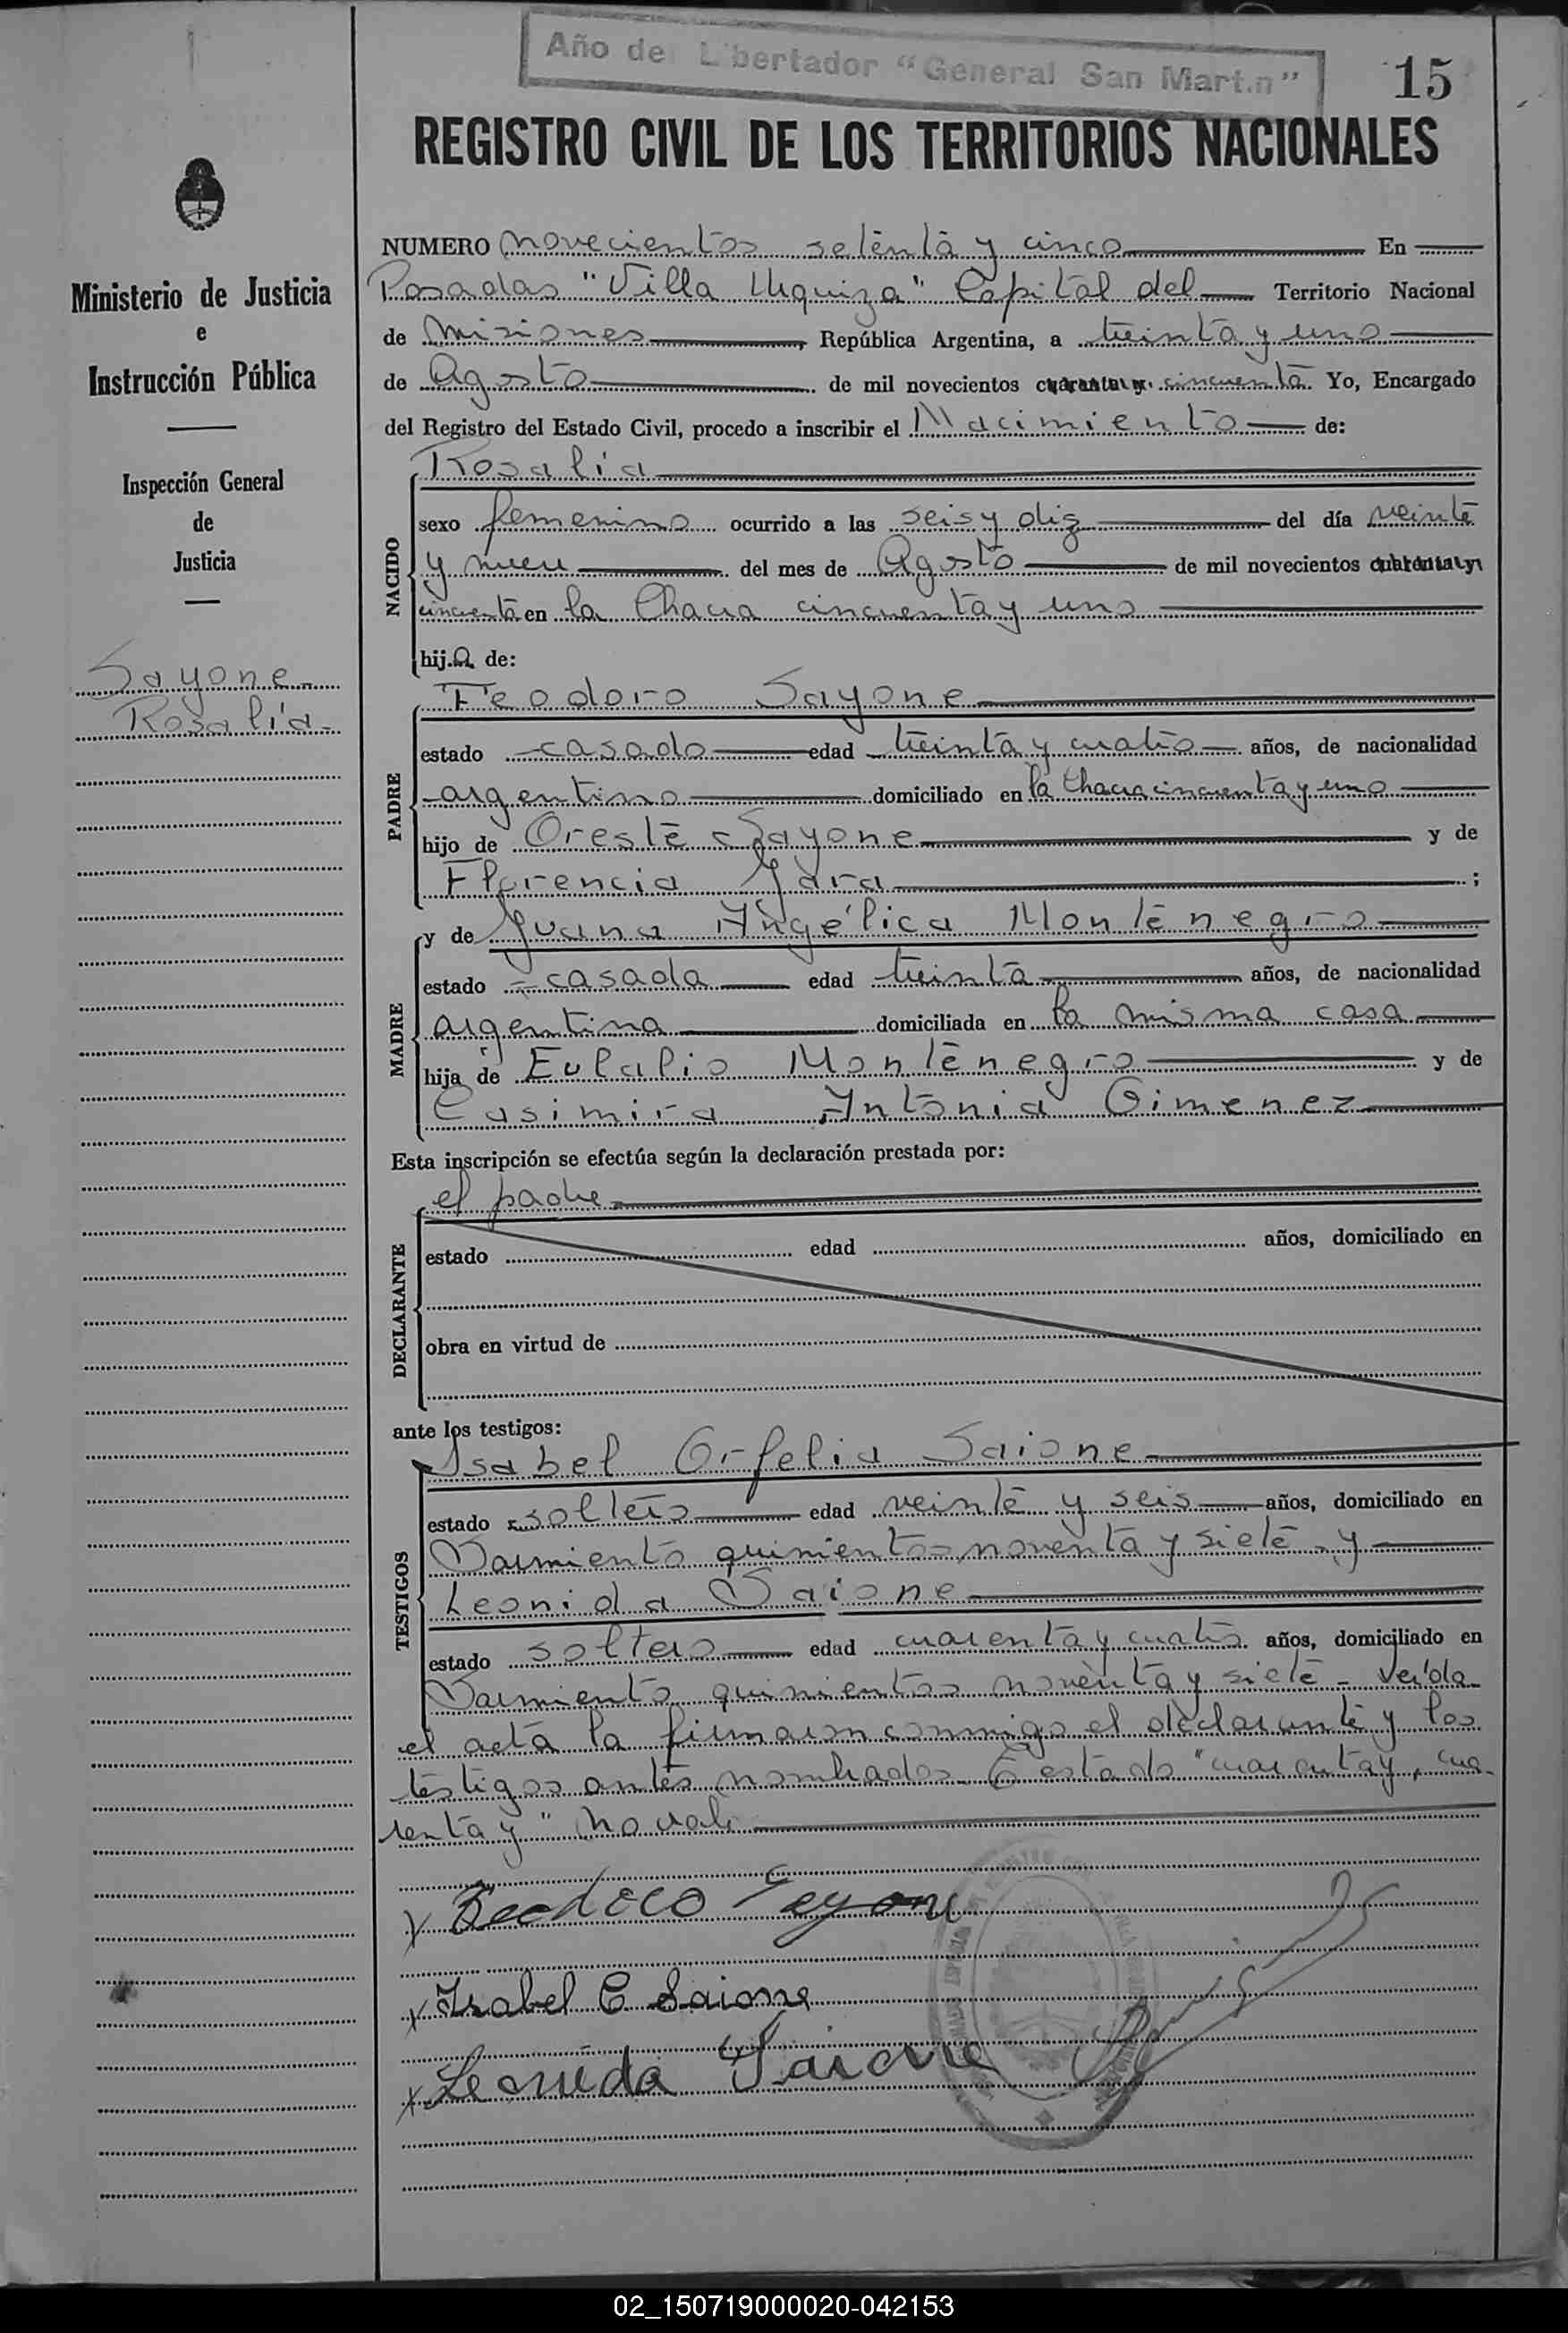 Año de Libertador "General San Martin"
15
REGISTRO CIVIL DE LOS TERRITORIOS NACIONALES
Ministerio de Justicia
e
Instrucción Pública
Inspección General
de
Justicia
Sayone
Rosalía
NUMERO novecientos setenta y cinco En
Posadas "Villa Urquiza" Capital del Territorio Nacional
de Misiones, República Argentina, a treinta y uno
de Agosto de mil novecientos cuarenta y cincuenta Yo, Encargado
del Registro del Estado Civil, procedo a inscribir el Nacimiento de:
NACIDO
Rosalía
sexo femenino ocurrido a las seis y diez del día veinte
y nueve del mes de Agosto de mil novecientos cuarenta y
cincuenta en la Chacra cincuenta y uno
hija de:
PADRE
Teodoro Sayone
estado casado edad treinta y cuatro años, de nacionalidad
argentino domiciliado en la Chacra cincuenta y uno
hijo de Oreste Sayone y de
Florencia Jara;
MADRE
y de Juana Angélica Montenegro
estado casada edad treinta años, de nacionalidad
argentina domiciliada en la misma casa
hija de Eulalio Montenegro y de
Casimira Antonia Gimenez
Esta inscripción se efectúa según la declaración prestada por:
DECLARANTE
el padre
estado edad años, domiciliado en
obra en virtud de
ante los testigos:
TESTIGOS
Isabel Orfelia Saione
estado soltero edad veinte y seis años, domiciliado en
Sarmiento quinientos noventa y siete y
Leonida Saione
estado soltero edad cuarenta y cuatro años, domiciliado en
Sarmiento quinientos noventa y siete - Leída
el acta la firmaron conmigo el declarante y los
testigos antes nombrados. Testado "cuarenta y, cua-
renta y" no vale
x Sayone
x Isabel O Saione
x Leonida Saione
02_150719000020-042153